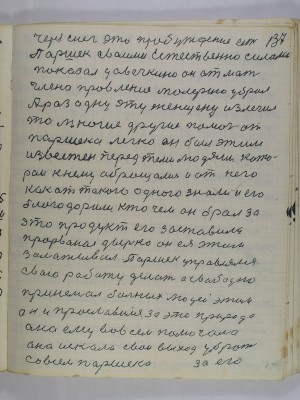 через снег это пробуждение сам 137
Паршек своими Естественно силами
показал у овечкино он от мат
члена провление молерию убрал
А раз одну эту женщену излечил
то многие другие помог от
паршека легко он был этим
известен перед теми людями кото-
рои к нему оброщалис и от него
как от такого одного знали и его
благодорили кто чем он брал за
это продукт его заставили
прорваная дверко он ея этим
залативал Паршек управлялся
сваю работу делат а свабодно
принемал болных людей этим
он и прославился за это природа
она ему вовсем помогала
она искала свои выход убрат
совсем паршека за его